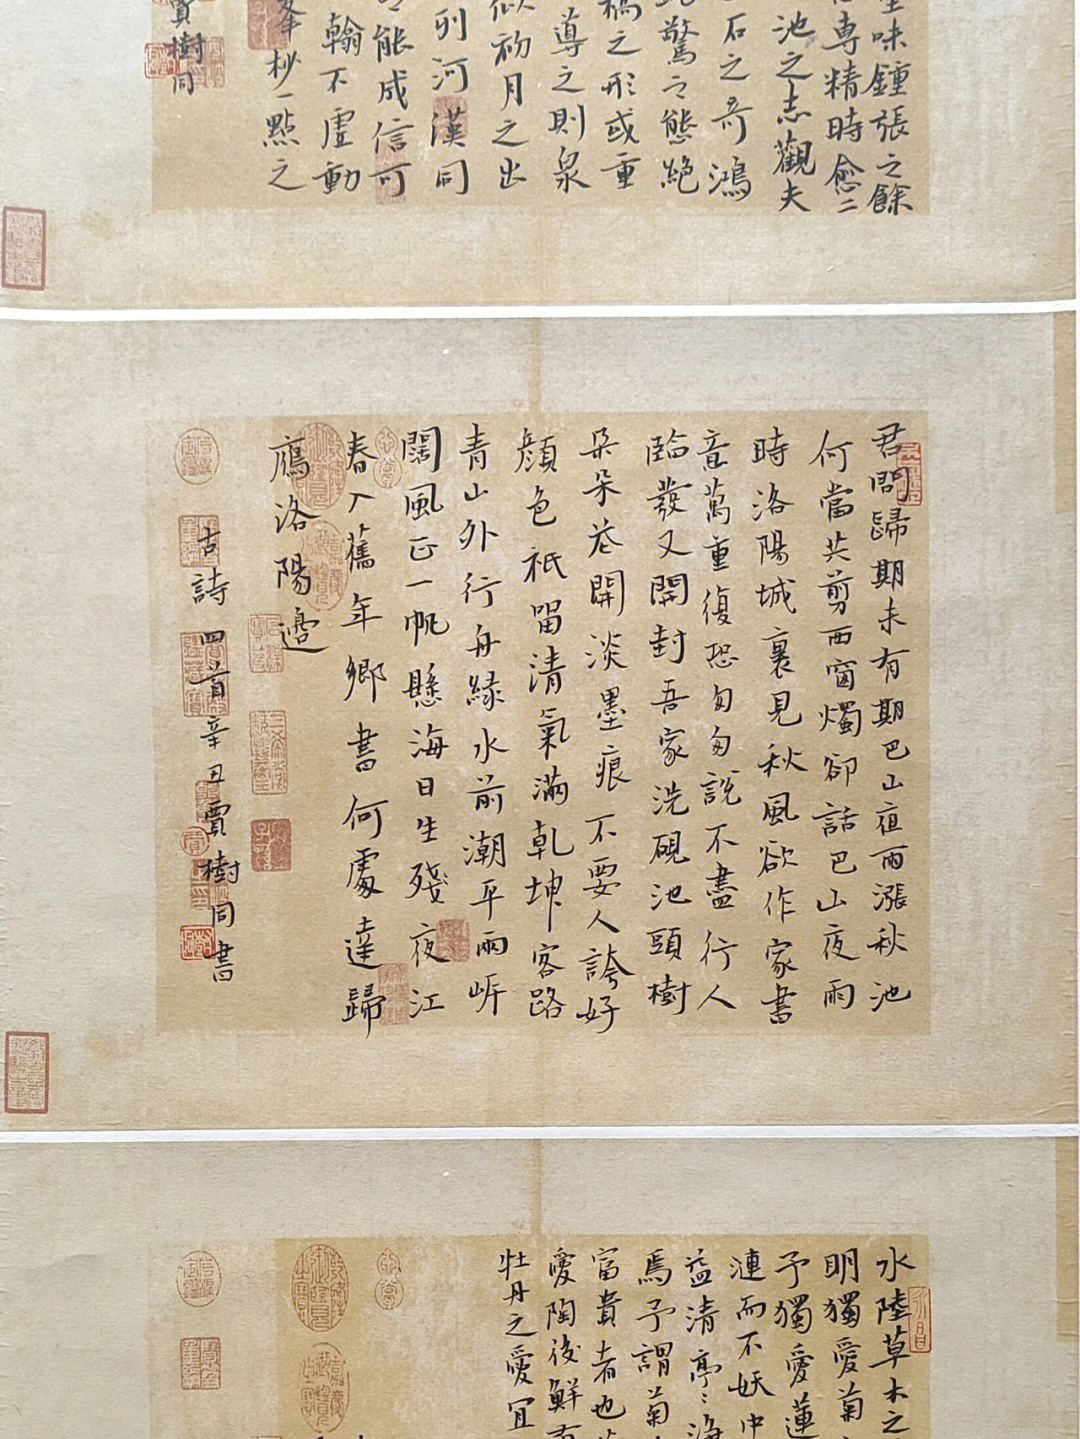 味鍾張之餘
專精時愈二
池之志觀夫
石之奇鴻
驚之態絶
槁之形或重
導之則泉
似初月之出
列河漢同
能成信可
翰不虛動
峯杪一點之
賈樹同
君問歸期未有期巴山夜雨漲秋池
何當共剪西窗燭卻話巴山夜雨
時洛陽城裏見秋風欲作家書
意萬重復恐匆匆說不盡行人
臨發又開封吾家洗硯池頭樹
朵朵花開淡墨痕不要人誇好
顏色衹留清氣滿乾坤客路
青山外行舟綠水前潮平兩岸
闊風正一帆懸海日生殘夜江
春入舊年鄉書何處達歸
鴈洛陽邊
古詩四首辛丑賈樹同書
水陸草木之
明獨愛菊
予獨愛蓮
漣而不妖中
益清亭亭
焉予謂菊
富貴者也
愛陶後鮮有
牡丹之愛宜